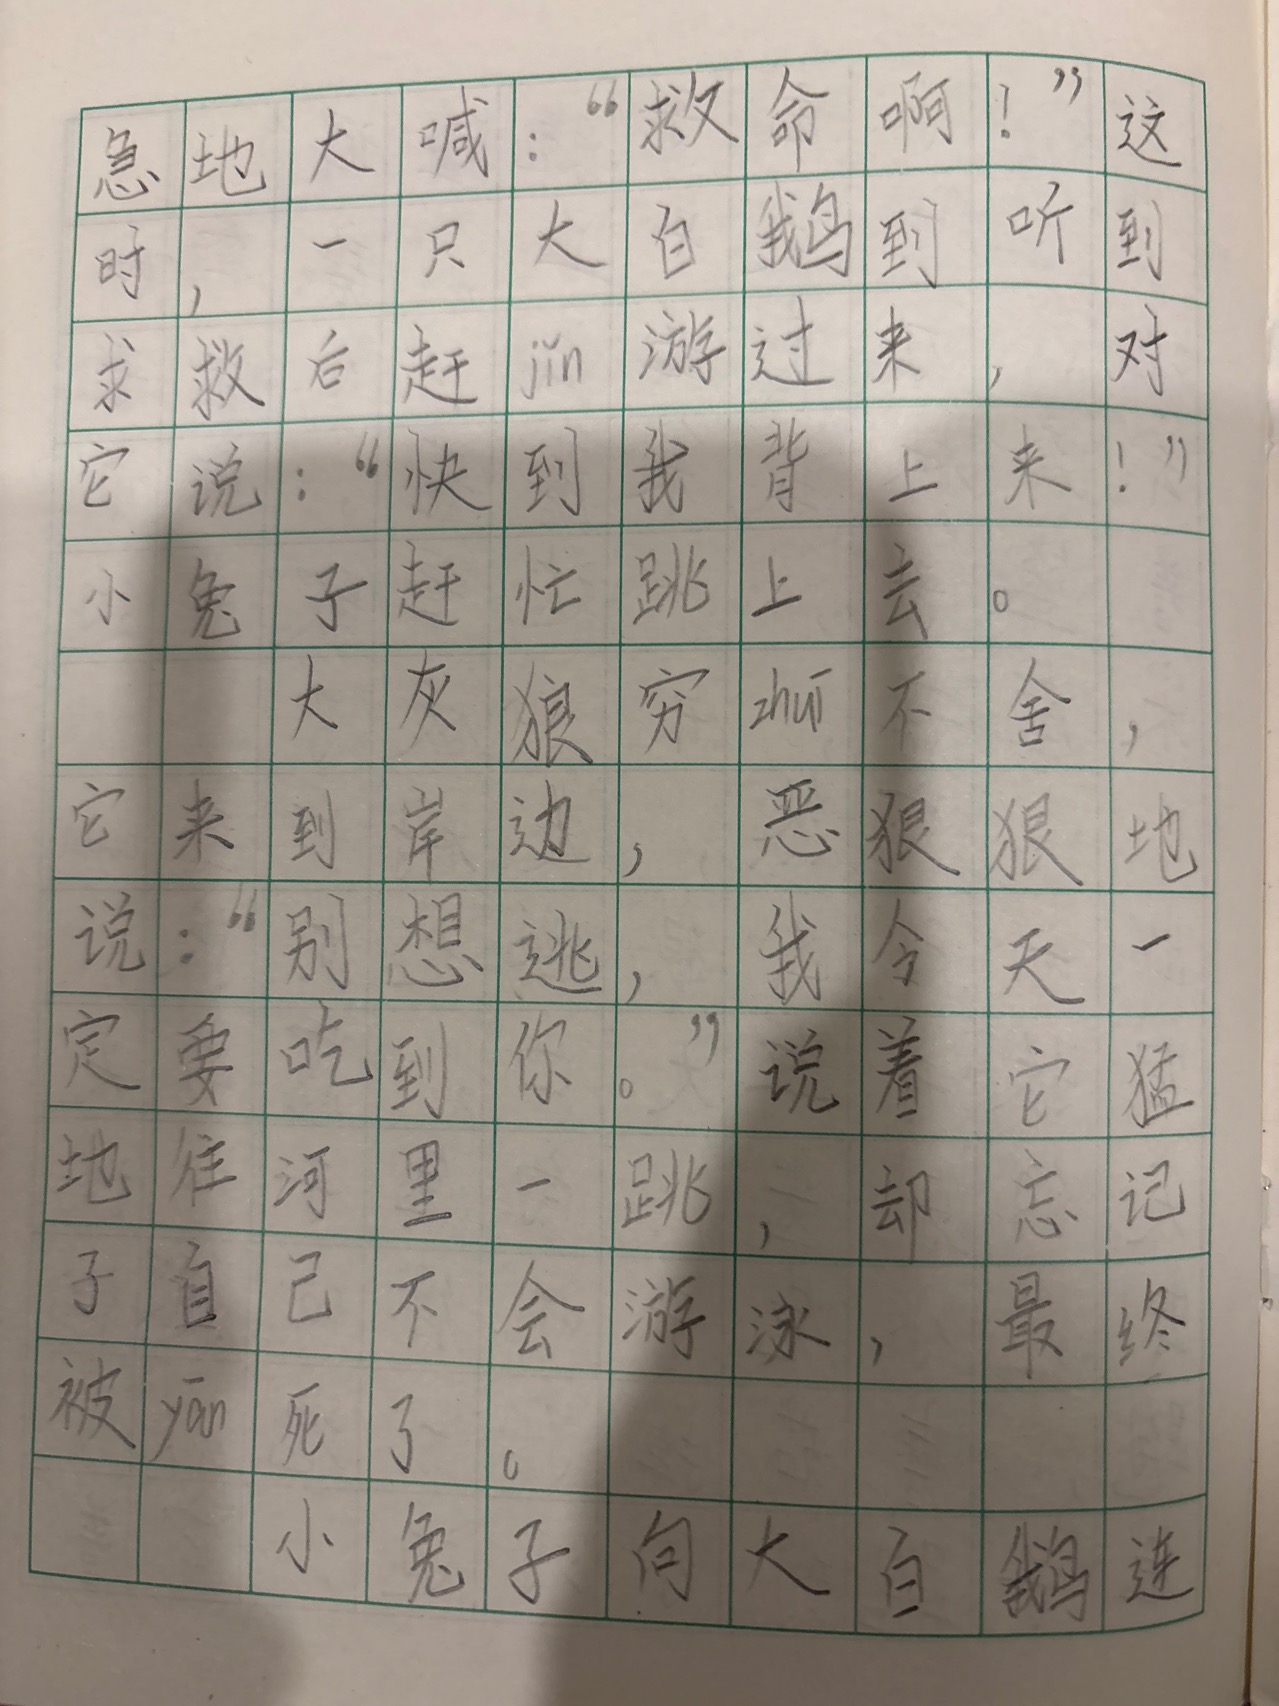 急地大喊：“救命啊！”这
时，一只大白鹅到听到
求救后赶jǐn游过来，对
它说：“快到我背上来！”
小兔子赶忙跳上去。
大灰狼穷zhuī不舍，
它来到岸边，恶狠狠地
说：“别想逃，我今天一
定要吃到你。”说着它猛
地往河里一跳，却忘记
了自己不会游泳，最终
被yān死了。
小兔子向大白鹅连